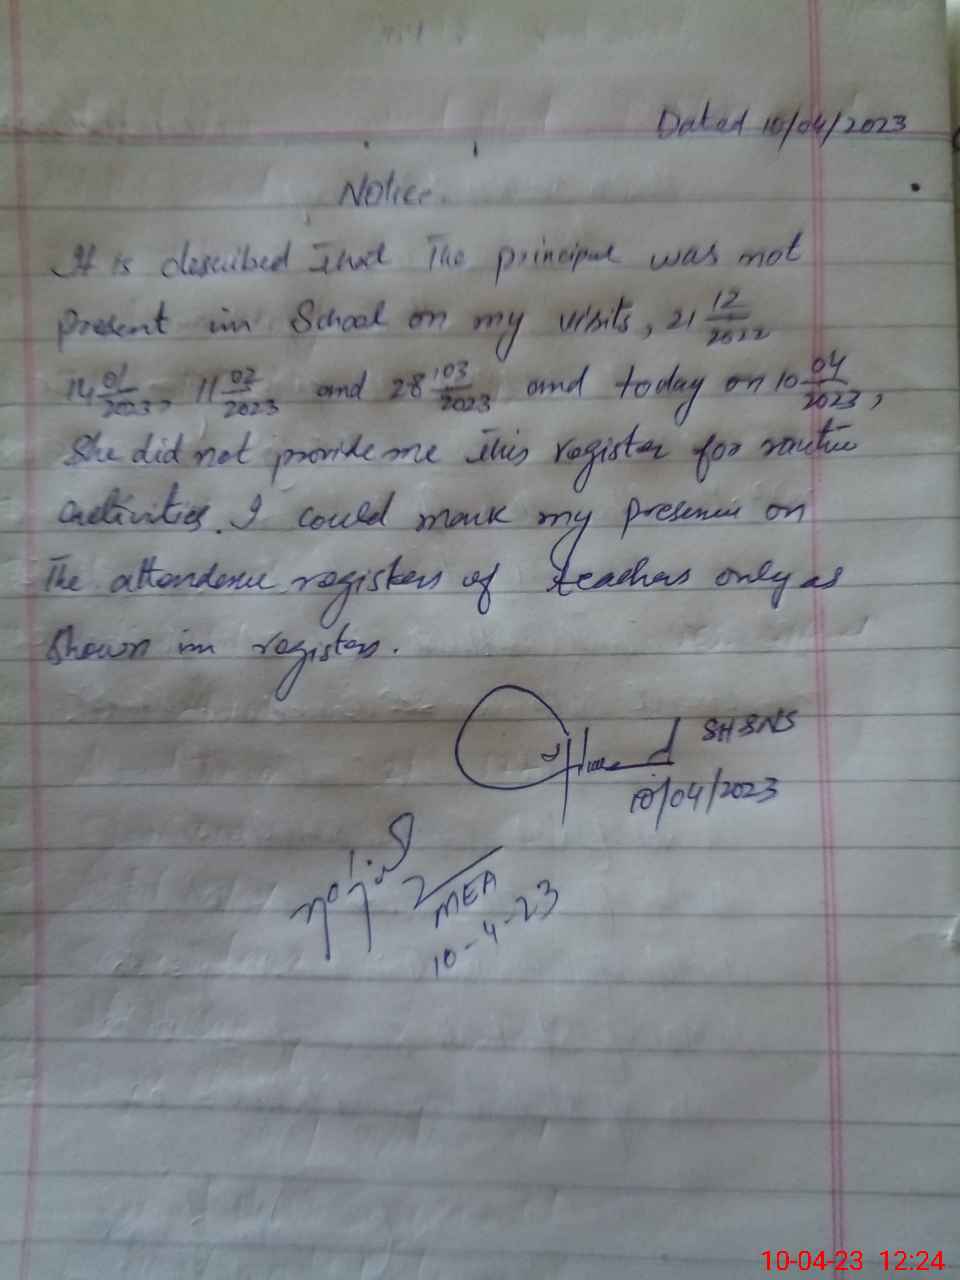 Dated 10/04/2023
Notice.
It is described that The principal was not
Present in School on my visits, 21 12/2022
14 01/2023, 11 02/2023 and 28 03/2023 and today on 10 04/2023,
She did not provide me this register for routine
activities. I could mark my presence on
The attendence registers of teachers only as
shown in registers.
SHSNS
10/04/2023
MEA
10-4-23
10-04-23 12:24